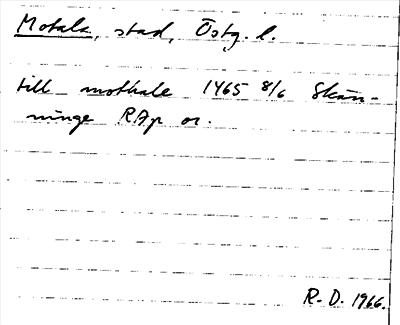 Motala, stad, Östg. l.
till mothale 1465 8/6 Skän-
ninge RAp or.
R. D. 1966.